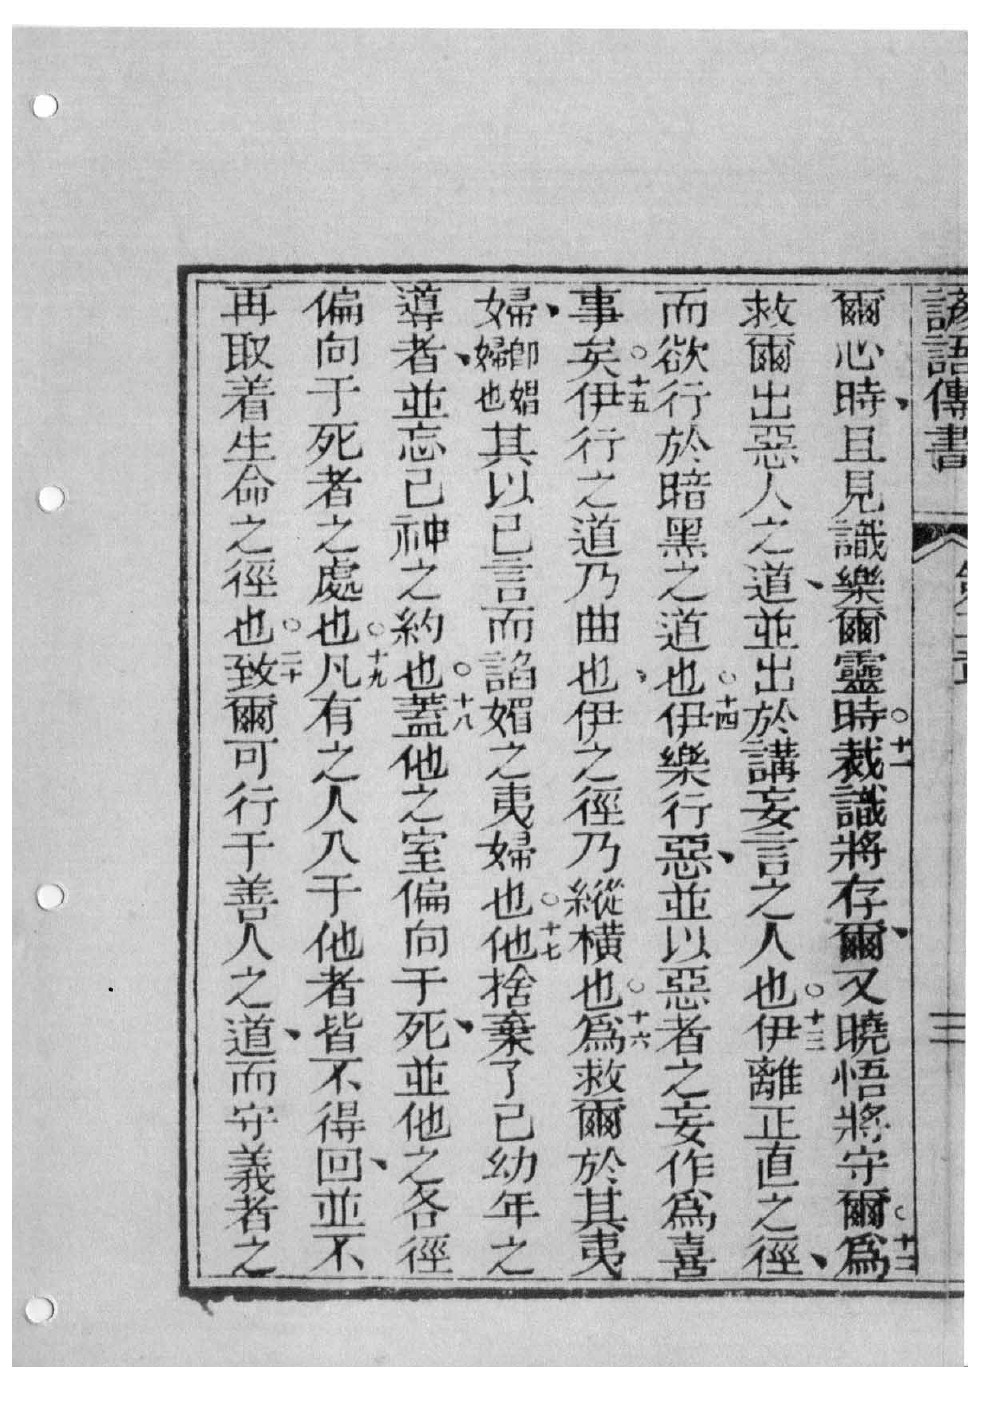 諺語傳書 三
爾心時、且見識樂爾靈時○十一裁識將存爾、又曉悟將守爾○十二爲
救爾出惡人之道、並出於講妄言之人也○十三伊離正直之徑、
而欲行於暗黑之道也○十四伊樂行惡、並以惡者之妄作爲喜
事矣○十五伊行之道乃曲也、伊之徑乃縱橫也○十六爲救爾於其夷
婦、卽娼婦也其以已言而諂媚之夷婦也○十七他捨棄了己幼年之
導者、並忘己神之約也○十八蓋他之室偏向于死、並他之各徑
偏向于死者之處也○十九凡有之人入于他者皆不得回、並不
再取着生命之徑也○二十致爾可行于善人之道、而守義者之